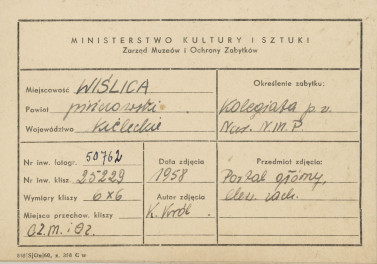 MINISTERSTWO KULTURY I SZTUKI
Zarząd Muzeów i Ochrony Zabytków
Miejscowość WIŚLICA
Powiat pińczowski
Województwo Kieleckie
Określenie zabytku:
Kolegiata p.w.
Nar. N.M.P
Nr inw. fotogr. 50762
Nr inw. klisz. 25229
Wymiary kliszy 6x6
Miejsce przechow. kliszy
OZ.M.iOZ.
Data zdjęcia
1958
Autor zdjęcia
K. Król
Przedmiot zdjęcia:
Portal główny,
elew. zach.